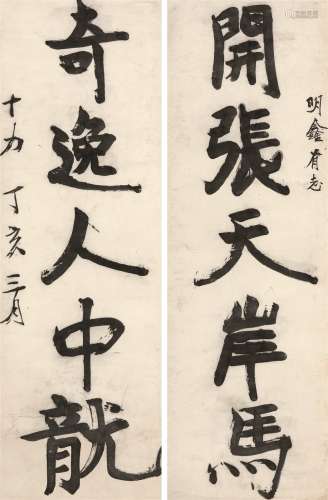 明鑫肴志
開張天岸馬
奇逸人中龍
十力 丁亥 三月